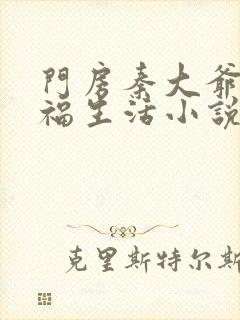 門房秦大爺
福生活小說
克里斯特尔斯